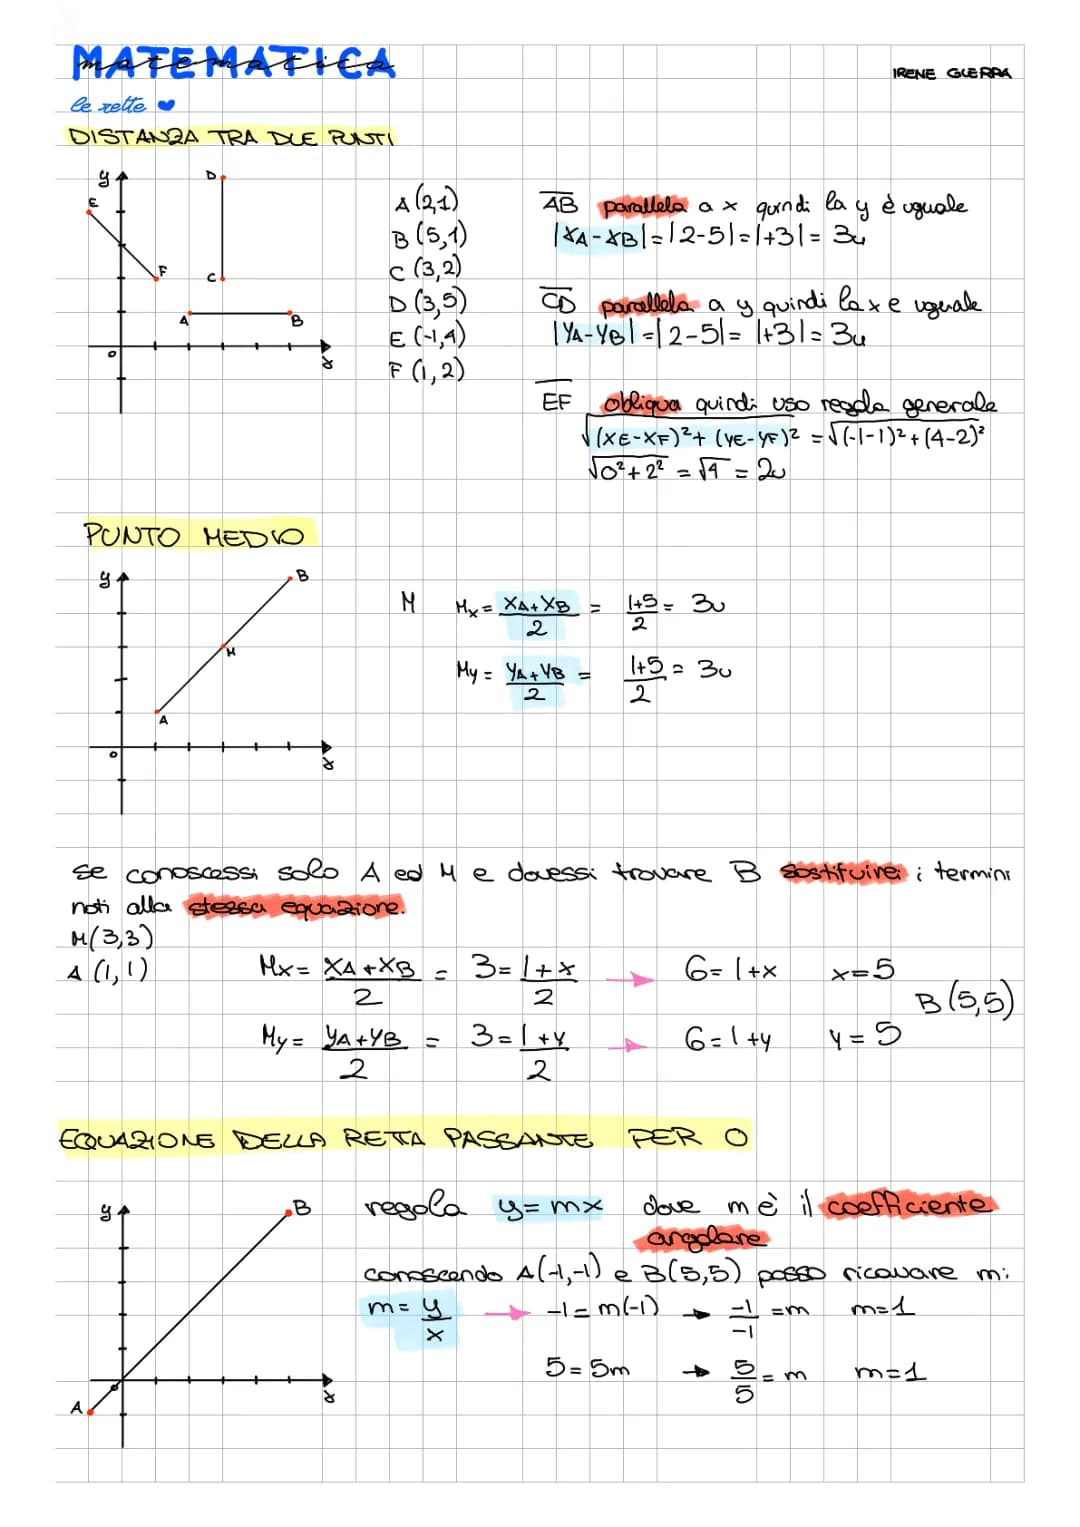 MATEMATICA
matematica
IRENE GUERRA
le rette
DISTANZA TRA DUE PUNTI
y
E
F
D
C
A
B
0
x
A (2,1)
B (5,1)
C (3,2)
D (3,5)
E (-1,4)
F (1,2)
AB parallela a x quindi la y è uguale
|XA-XB|=|2-5|=|+3|= 3u
CD parallela a y quindi la x e uguale
|YA-YB|=|2-5|= |+3|= 3u
EF obliqua quindi uso regola generale
√(XE-XF)²+(YE-YF)² =√(-1-1)²+(4-2)²
√0²+2² = √4 = 2u
PUNTO MEDIO
y
B
M
A
0
x
M Mx= XA+XB/2 = 1+5/2 = 3u
My= YA+YB/2 = 1+5/2 = 3u
se conoscessi solo A ed M e dovessi trovare B sostituirei i termini
noti alla stessa equazione.
M(3,3)
A (1,1)
Mx= XA+XB/2 = 3= 1+x/2 → 6=1+x x=5
B(5,5)
My= YA+YB/2 = 3= 1+y/2 → 6=1+y y=5
EQUAZIONE DELLA RETTA PASSANTE PER O
y
B
A
0
x
regola y=mx dove m è il coefficiente
angolare
conoscendo A(-1,-1) e B(5,5) posso ricavare m:
m= y/x → -1=m(-1) → -1/-1 =m m=1
5=5m → 5/5 = m m=1